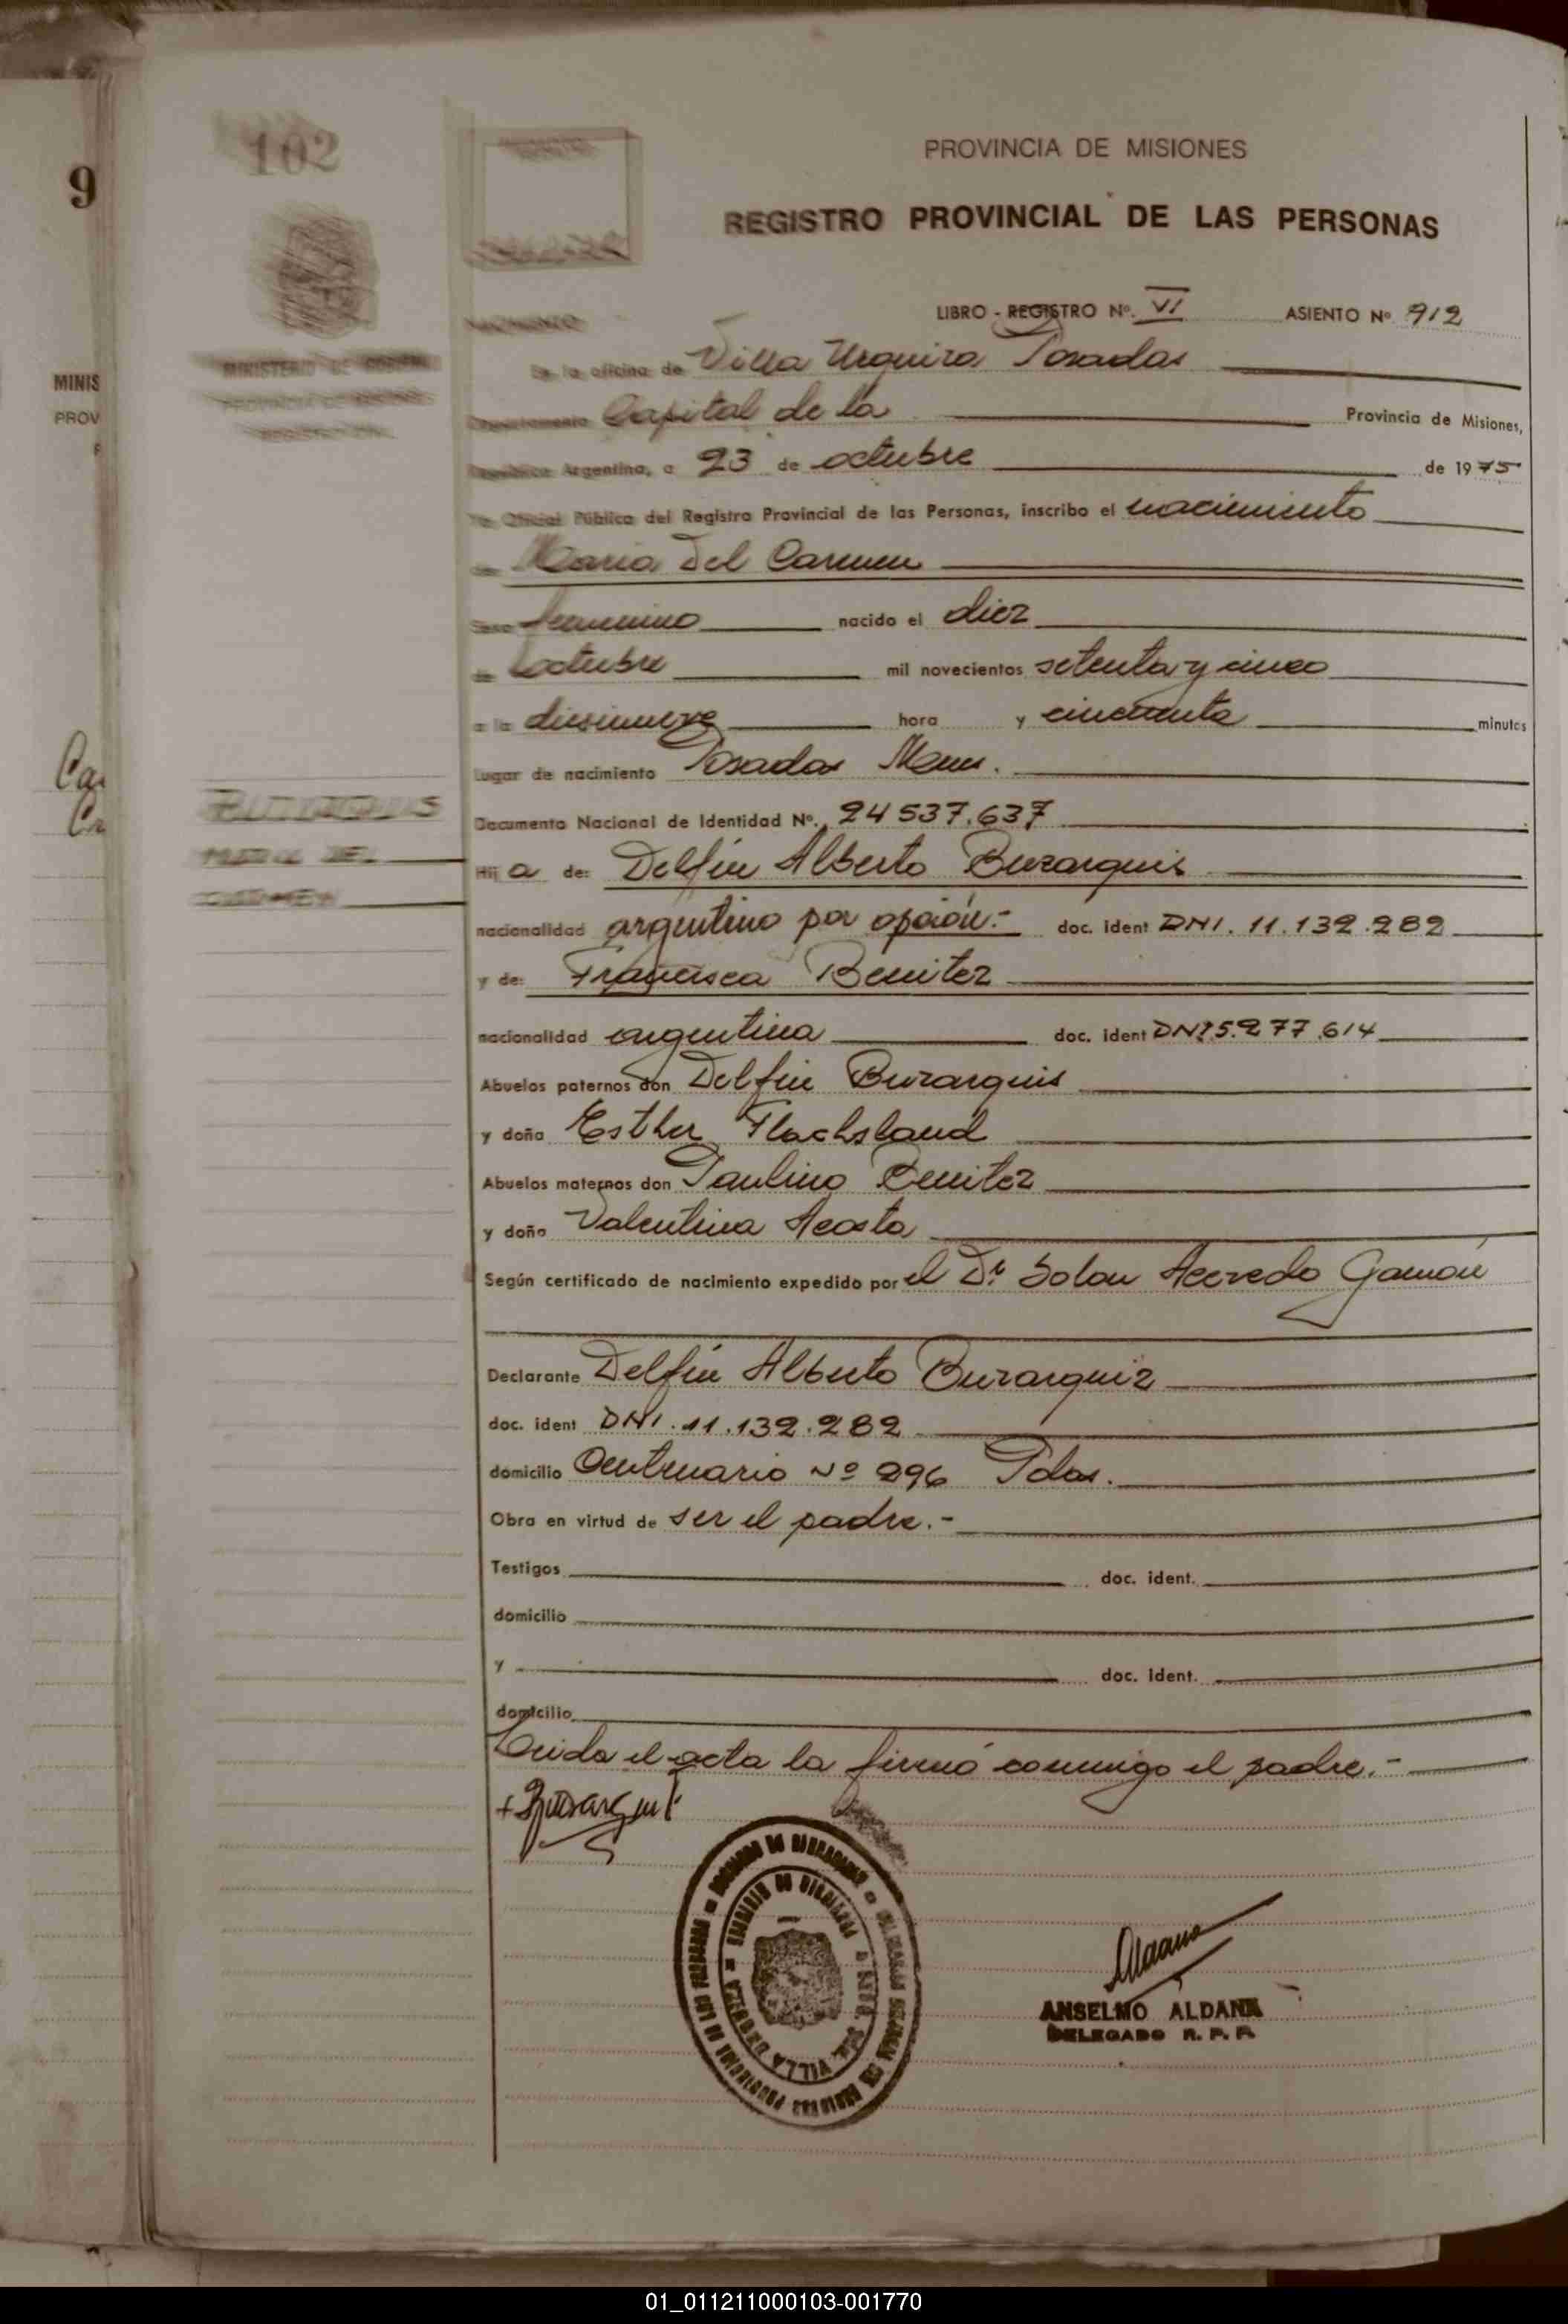 102
9
PROVINCIA DE MISIONES
REGISTRO PROVINCIAL DE LAS PERSONAS
LIBRO - REGISTRO Nº. VI ASIENTO Nº 912
MINISTERIO DE
MINIS
PROV
En la oficina de Villa Urquiza Posadas
Departamento Capital de la Provincia de Misiones,
República Argentina, a 23 de octubre de 1975
Yo Oficial Público del Registro Provincial de las Personas, inscribo el nacimiento
de Maria Del Carmen
Sexo femenino nacido el diez
de octubre mil novecientos setenta y cinco
a la diesinueve hora y cincuenta minutos
Lugar de nacimiento Posadas Mnes.
Ca
BUZARQUIS
MARIA DEL
CARMEN
Documento Nacional de Identidad Nº. 24537.637
Hij a de: Delfín Alberto Buzarquis
nacionalidad argentino por opción.- doc. ident DNI. 11.132.282
y de: Francisca Benitez
nacionalidad argentina doc. ident DNI 5.277.614
Abuelos paternos don Delfin Buzarquis
y doña Esther Flachsland
Abuelos maternos don Paulino Benitez
y doña Valentina Acosta
Según certificado de nacimiento expedido por el Dr. Solon Acevedo Gamón
Declarante Delfín Alberto Buzarquiz
doc. ident DNI. 11.132.282
domicilio Centenario Nº 296 Pdas.
Obra en virtud de ser el padre.-
Testigos doc. ident.
domicilio
y doc. ident.
domicilio
Leida el acta la firmó conmigo el padre.-
VILLA URQUIZA
ANSELMO ALDANA
DELEGADO R. P. P.
01_011211000103-001770